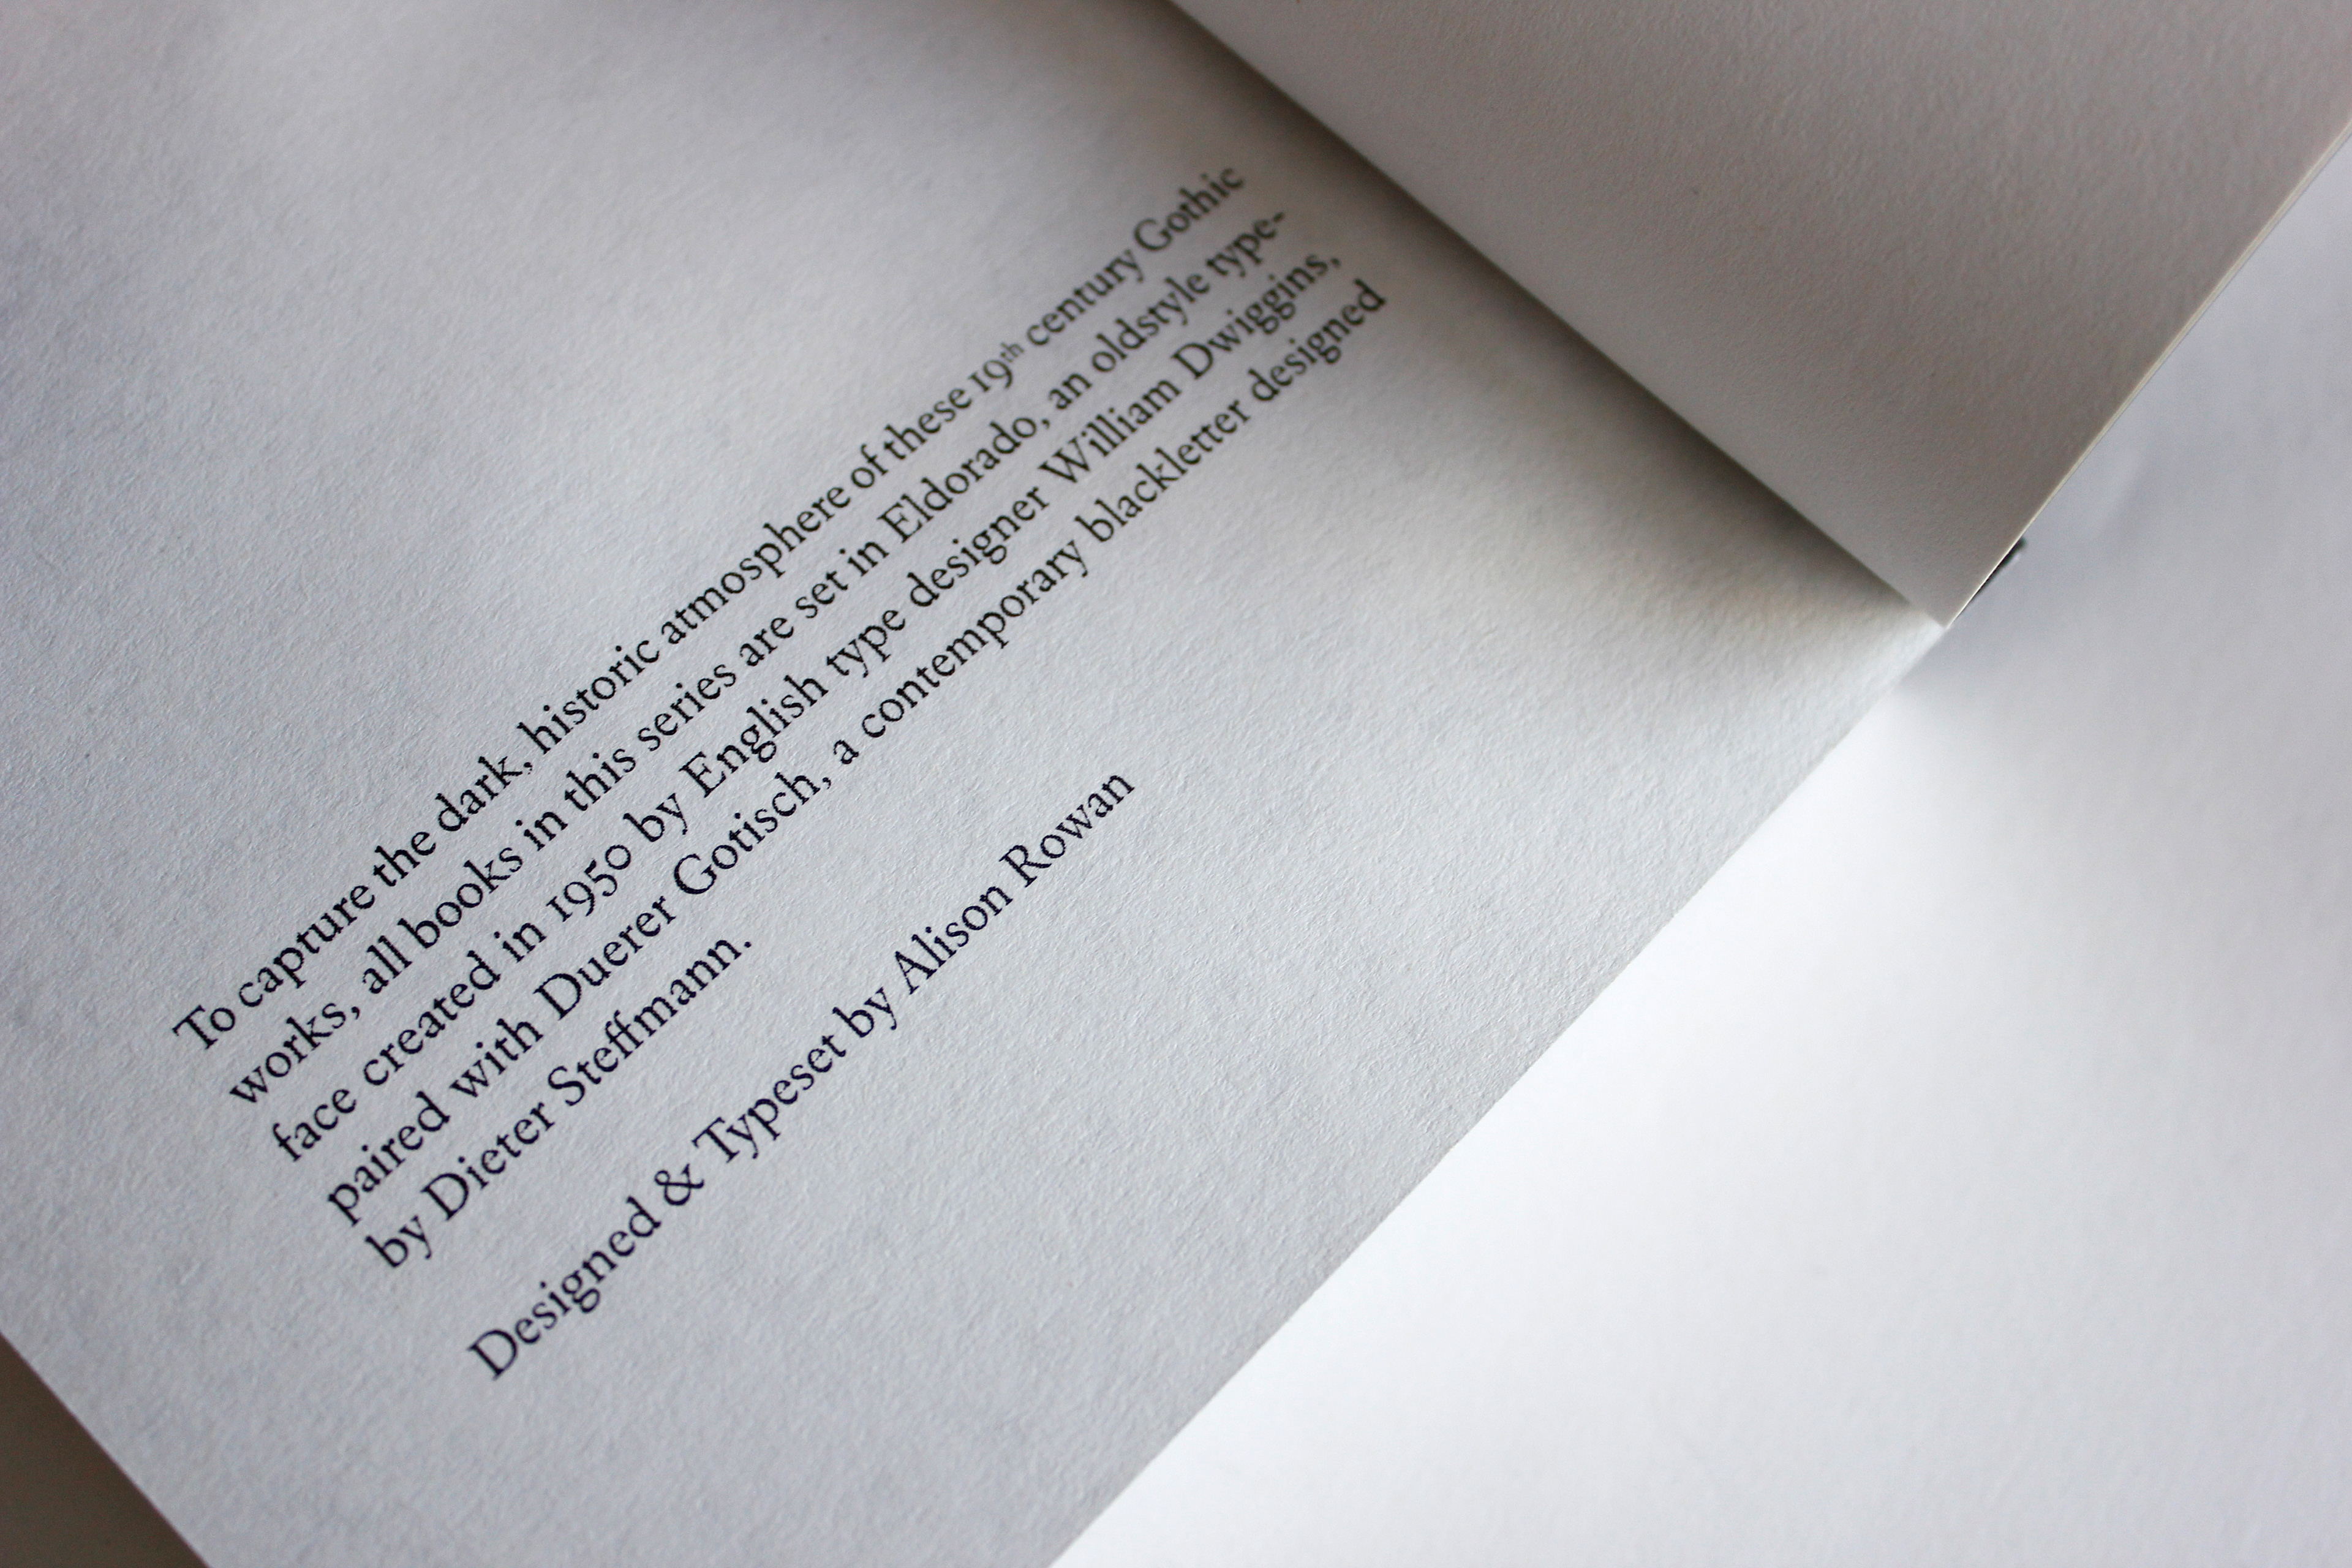 To capture the dark, historic atmosphere of these 19th century Gothic
works, all books in this series are set in Eldorado, an oldstyle type-
face created in 1950 by English type designer William Dwiggins,
paired with Duerer Gotisch, a contemporary blackletter designed
by Dieter Steffmann.
Designed & Typeset by Alison Rowan